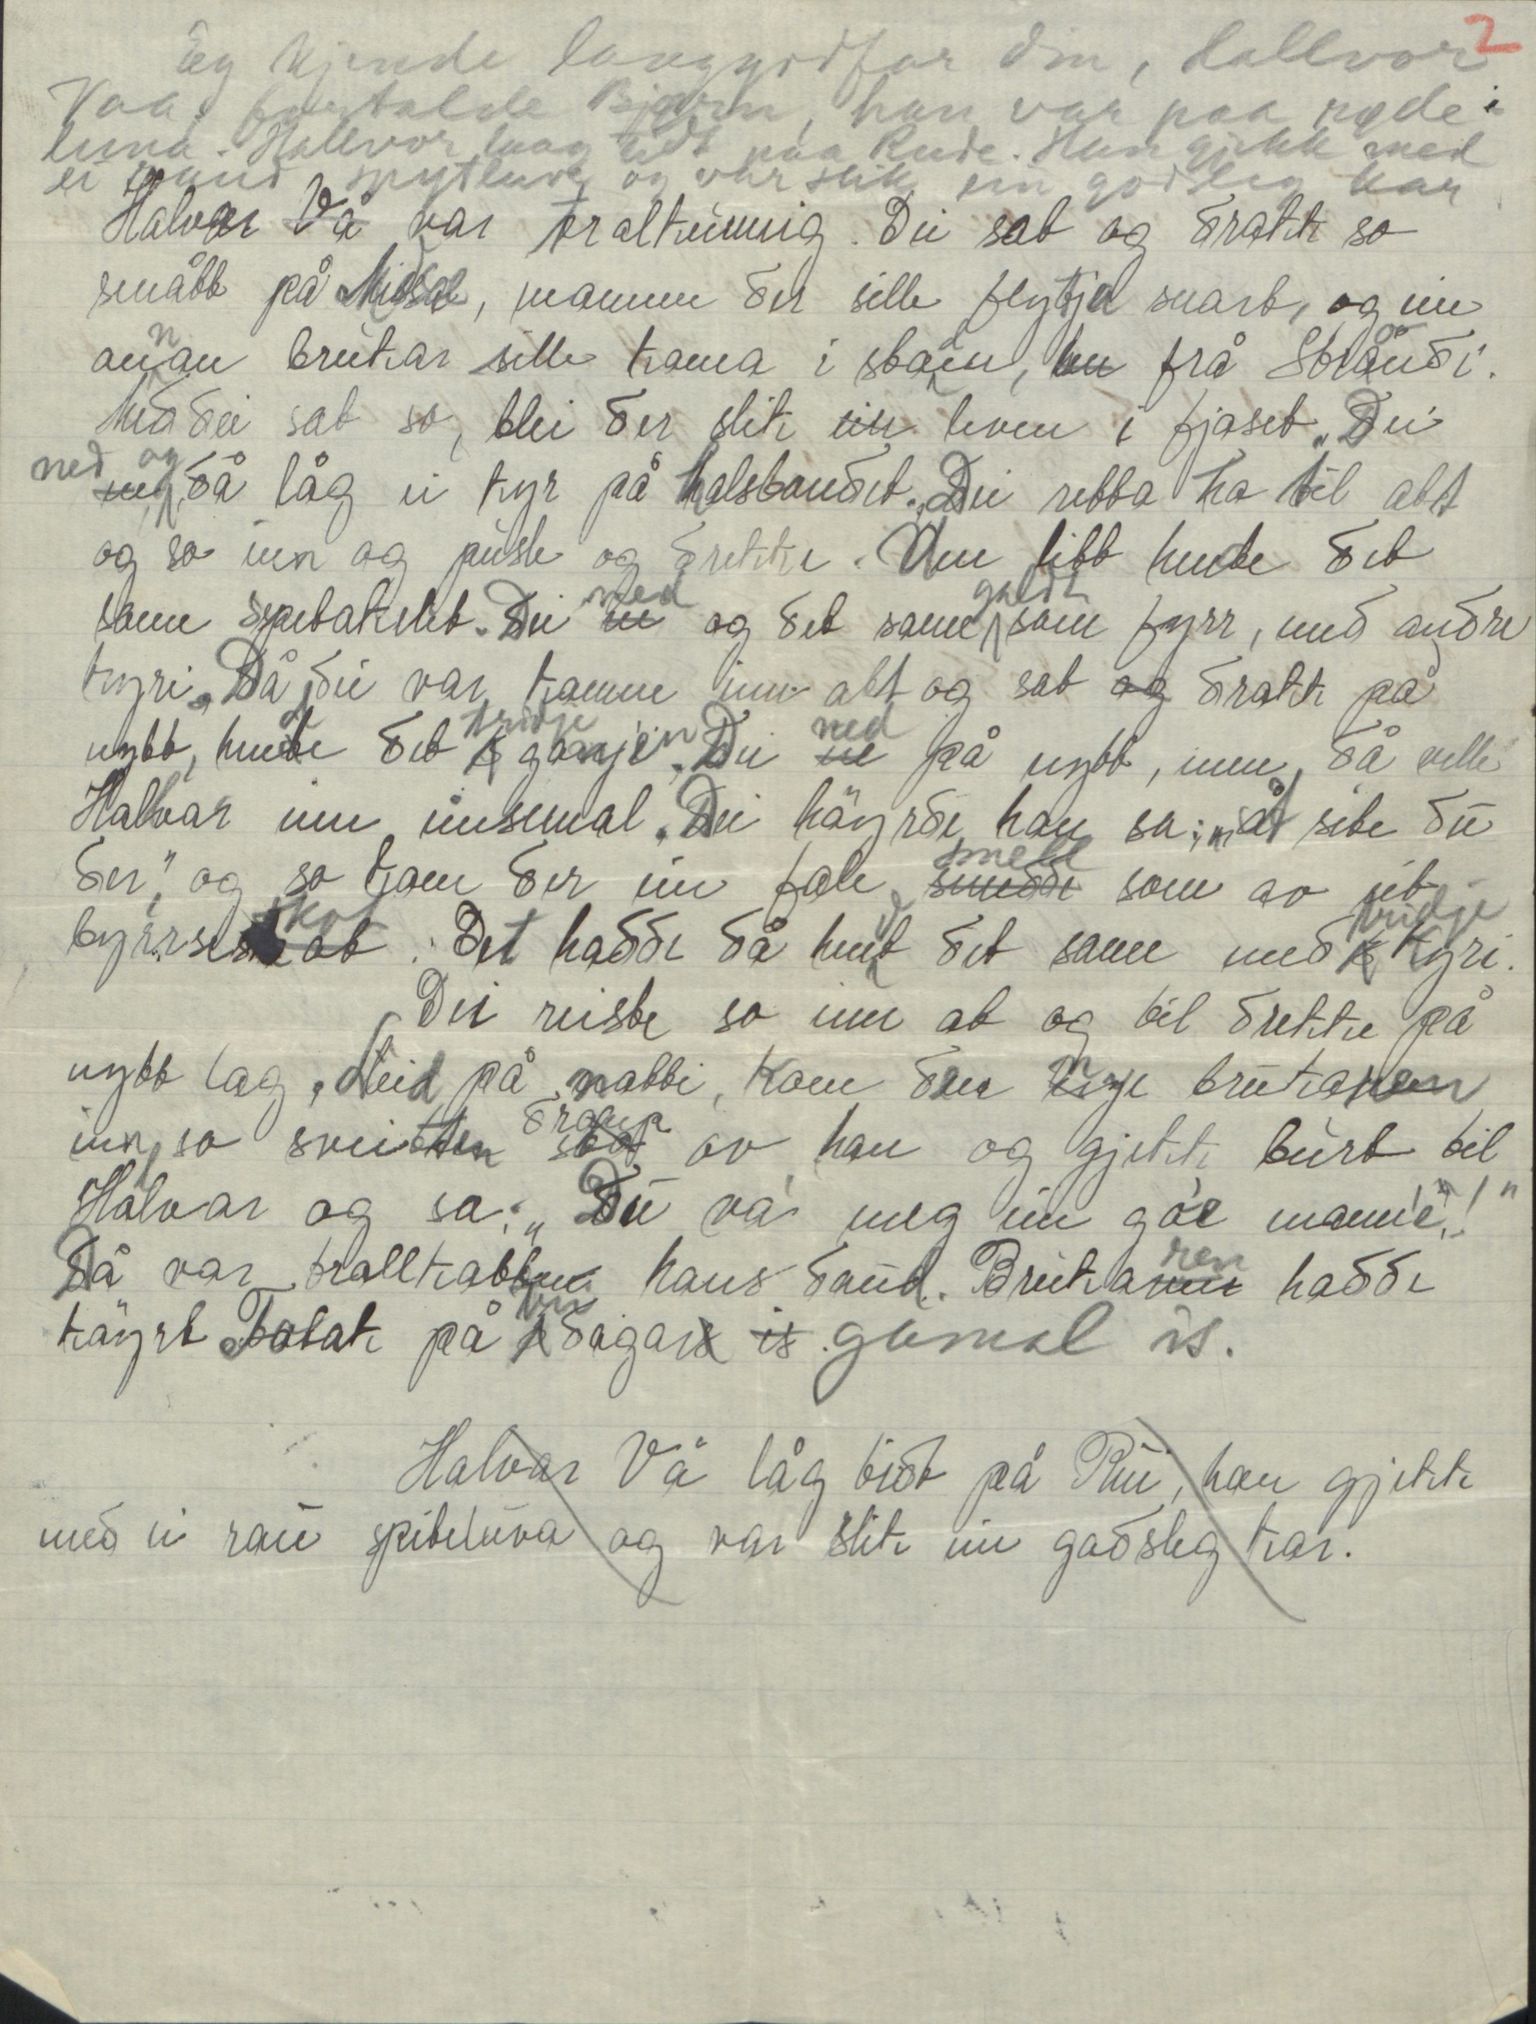 2
Eg kjende langgodfar din, Hallvor
Vaa, fortalde Bjørn, han var paa røde i
Hallvor laag tidt paa Rude. Han gjikk med
ei raud spyteluve og var slik ein godsleg kar
Halvar Vå var trolkunnig. Dei sat og drakk so
smått på Midsæ, mannen der sille flytja snart, og ein
annan brukar sille koma i stain, frå Strånde.
Må dei sat so, blei der slik ein leven i fjøset. Dei
ned og då låg ei kyr på halsbandet. Dei retta ho til att
og so inn og puste og drekke. Um litt hende det
same spetakelet. Dei ned og det same galdt som fyrr, med andre
kyri. Då dei var komne inn att og sat og drakk på
nytt, hende det tridje ganjen. Dei ned på nytt, men då ville
Halvar inn einsemal. Dei höyrde han sa: "sit du
der," og so kom der ein fæl smell som av eit
byrseskot. Det hadde då hendt det same med tridje kyri.
Dei reiste so inn at og til drekke på
nytt lag. Leid på natti, kom den nye brukaren
inn, so sveitten draup av han og gjekk burt til
Halvar og sa: "Du va meg ein goe mannie!"
Då var trollkatten hans daud. Brukaren hadde
köyrt Totak på tri dagar gamal is.
Halvar Vå låg tidt på Rui, han gjekk
med ei rau spiteluva og var slik ein godsleg kar.